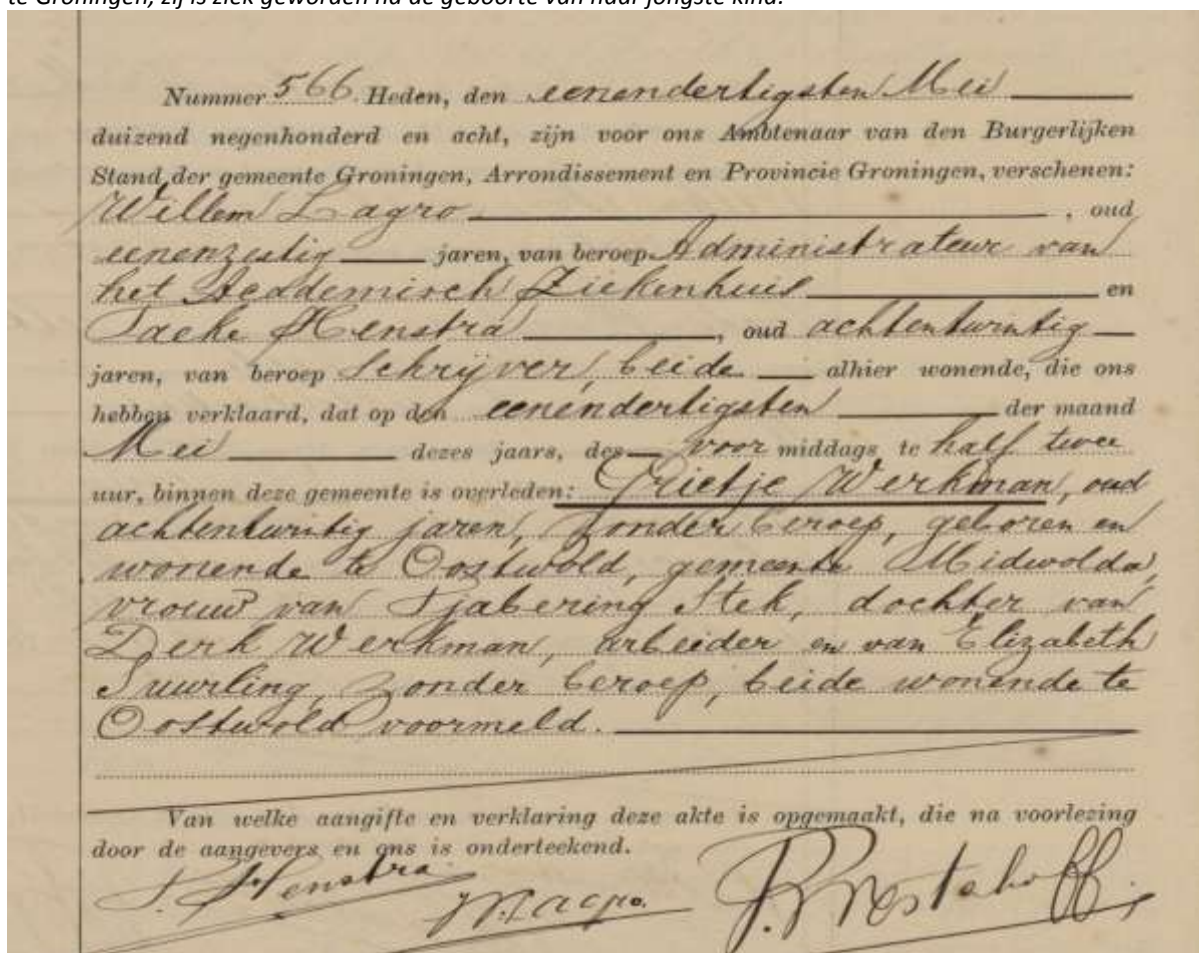 te Groningen, zij is ziek geworden na de geboorte van haar jongste kind.
Nummer 566. Heden, den eenendertigsten Mei
duizend negenhonderd en acht, zijn voor ons Ambtenaar van den Burgerlijken
Stand der gemeente Groningen, Arrondissement en Provincie Groningen, verschenen:
Willem Lagro, oud
eenenzestig jaren, van beroep Administrateur van
het Academisch Ziekenhuis en
Taeke Henstra, oud achtentwintig
jaren, van beroep Schrijver, beide alhier wonende, die ons
hebben verklaard, dat op den eenendertigsten der maand
Mei dezes jaars, des voor middags te half twee
uur, binnen deze gemeente is overleden: Grietje Werkman, oud
achtentwintig jaren, zonder beroep, geboren en
wonende te Oostwold, gemeente Midwolda,
vrouw van Tjabering Stek, dochter van
Derk Werkman, arbeider en van Elizabeth
Tuurling, zonder beroep, beide wonende te
Oostwold voormeld.
Van welke aangifte en verklaring deze akte is opgemaakt, die na voorlezing
door de aangevers en ons is onderteekend.
T. Henstra
W. Lagro.